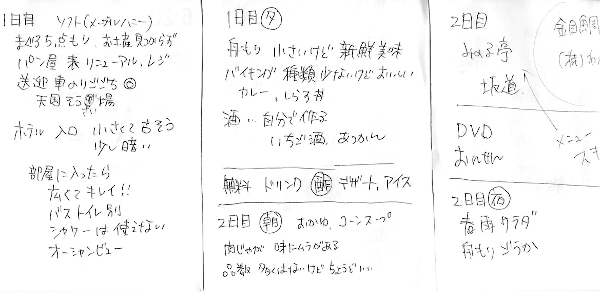 1日目 ソフト(メープルハニー)
まぐろち点もり、お土産見つからず
パン屋 裏 リニューアル、レジ
送迎 車のりごこち◎
天国そう 場
ホテル 入口 小さくて古そう
少し暗い
部屋に入ったら
広くてキレイ!!
バストイレ別
シャワーは使えない
オーシャンビュー
1日目 夕
舟もり 小さいけど新鮮美味
バイキング 種類少ないけどおいしい
カレー、しらす丼
酒… 自分で作る
いちご酒、あつかん
無料 ドリンク 鯛 デザート、アイス
2日目 朝 おかゆ、コーンスープ
肉じゃが 味にムラがある
品数 多くはないけどちょうどいい
2日目
みはる亭
坂道
金目鯛
(株)
メニュー
DVD
おんせん
2日目 夜
春雨サラダ
舟もり ごうか